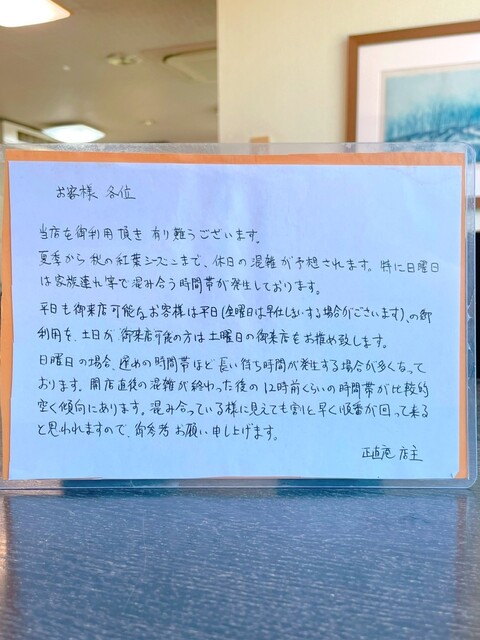 お客様 各位
当店を御利用頂き 有り難うございます。
夏季から秋の紅葉シーズンまで、休日の混雑が予想されます。特に日曜日
は家族連れ等で混み合う時間帯が発生しております。
平日も御来店可能なお客様は平日(金曜日は早仕まいする場合がございます)、の御
利用を、土日が御来店可能の方は土曜日の御来店もお推め致します。
日曜日の場合、遅めの時間帯ほど長い待ち時間が発生する場合が多くなって
おります。開店直後の混雑が終わった後の12時前くらいの時間帯が比較的
空く傾向にあります。混み合っている様に見えても割と早く順番が回って来る
と思われますので、御参考お願い申し上げます。
正直庵 店主